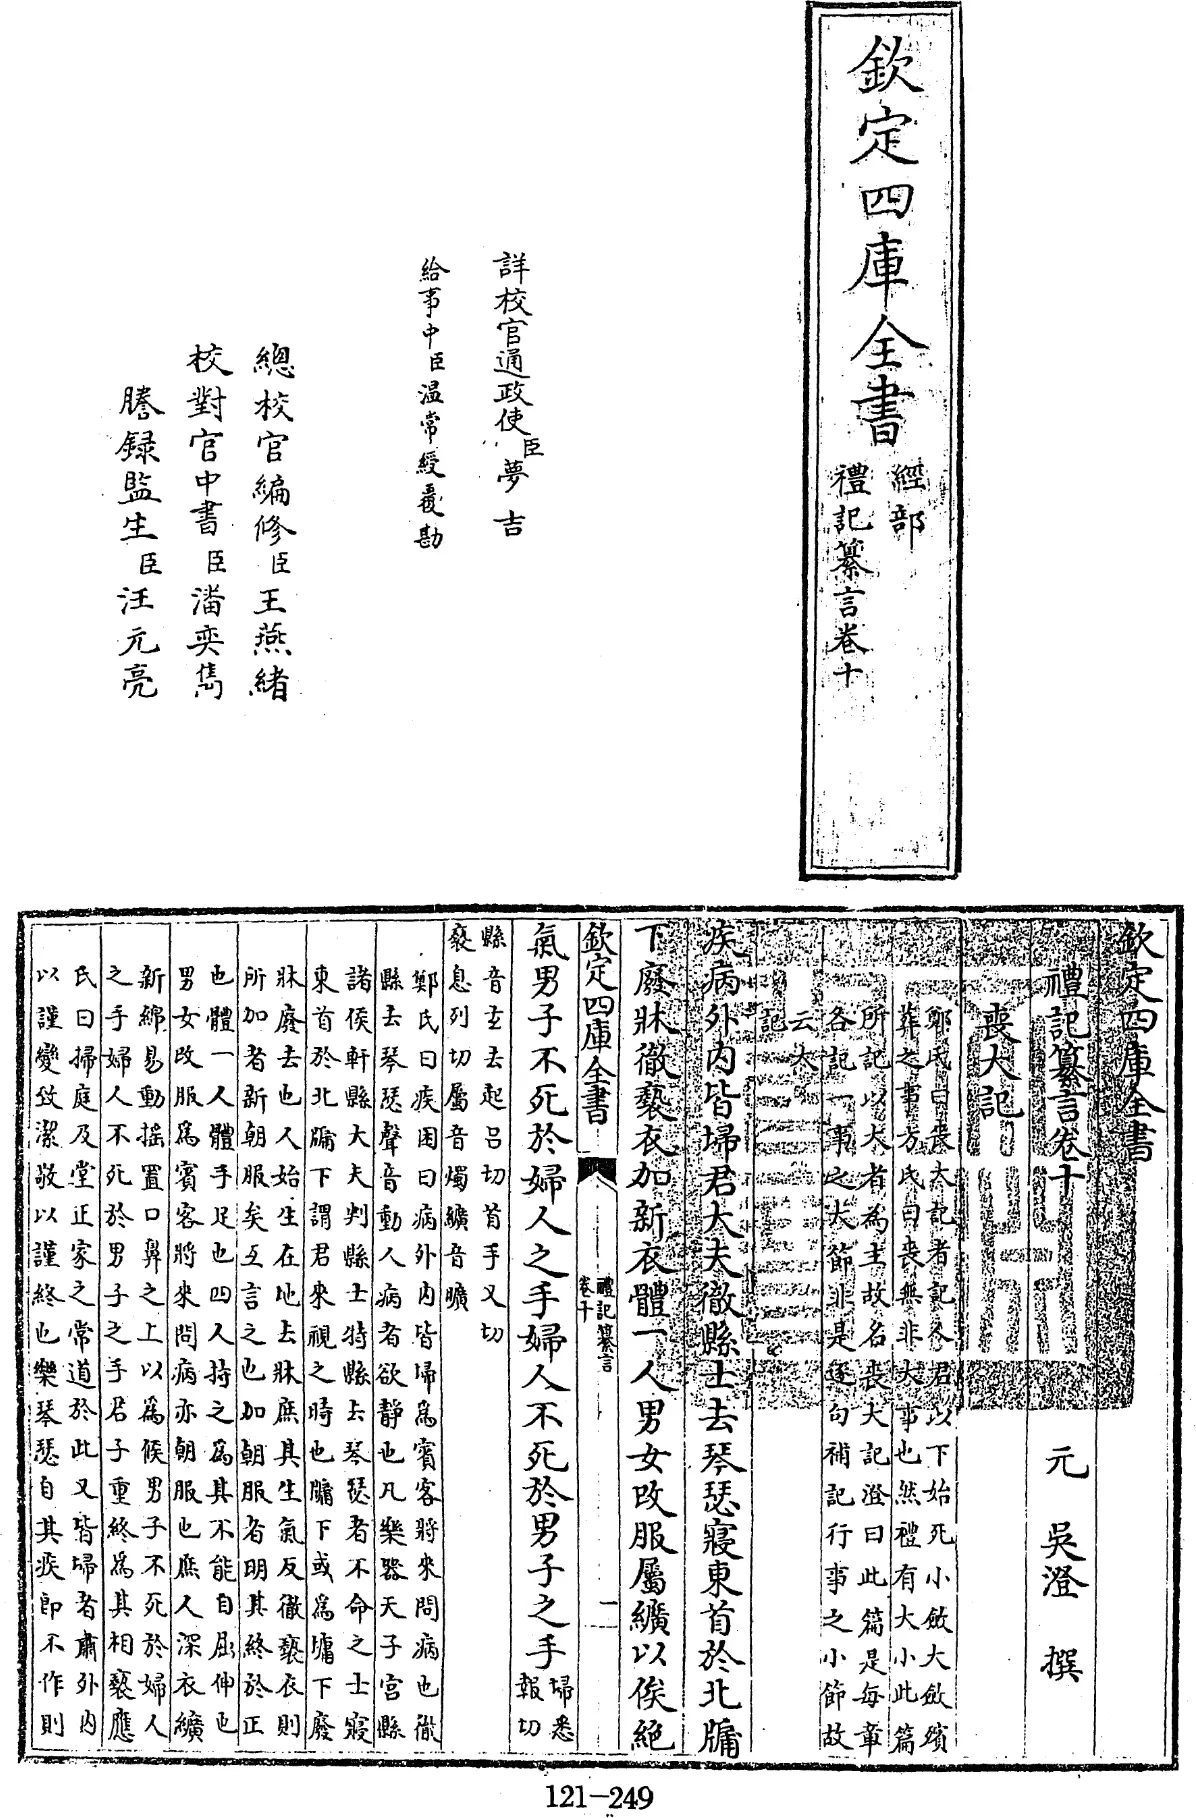 欽定四庫全書
經部
禮記纂言卷十
詳校官通政使臣夢吉
給事中臣温常綬覆勘
總校官編修臣王燕緒
校對官中書臣潘奕雋
謄録監生臣汪元亮
欽定四庫全書
禮記纂言卷十
元 吳澄 撰
喪大記
鄭氏曰喪大記者記人君以下始死小斂大斂殯
葬之事方氏曰喪無非大事也然禮有大小此篇
所記以大者為主故名喪大記澄曰此篇是每章
各記一事之大節非是逐句補記行事之小節故
云大
記
疾病外內皆埽君大夫徹縣士去琴瑟寢東首於北牖
下廢牀徹褻衣加新衣體一人男女改服屬纊以俟絶
欽定四庫全書
禮記纂言
卷十
一
氣男子不死於婦人之手婦人不死於男子之手
埽悉
報切
縣音玄去起呂切首手又切
褻息列切屬音燭纊音曠
鄭氏曰疾困曰病外內皆埽為賓客將來問病也徹
縣去琴瑟聲音動人病者欲靜也凡樂器天子宮縣
諸侯軒縣大夫判縣士特縣去琴瑟者不命之士寢
東首於北牖下謂君來視之時也牖下或為墉下廢
牀廢去也人始生在地去牀庶其生氣反徹褻衣則
所加者新朝服矣互言之也加朝服者明其終於正
也體一人體手足也四人持之為其不能自屈伸也
男女改服為賓客將來問病亦朝服也庶人深衣纊
新綿易動搖置口鼻之上以為候男子不死於婦人
之手婦人不死於男子之手君子重終為其相褻應
氏曰掃庭及堂正家之常道於此又皆埽者肅外內
以謹變致潔敬以謹終也樂琴瑟自其疾即不作則
121-249